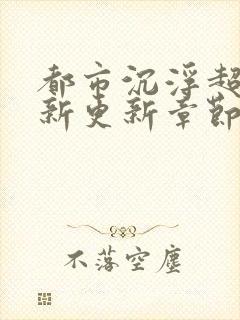 都市沉浮超
新更新章節
不落空塵